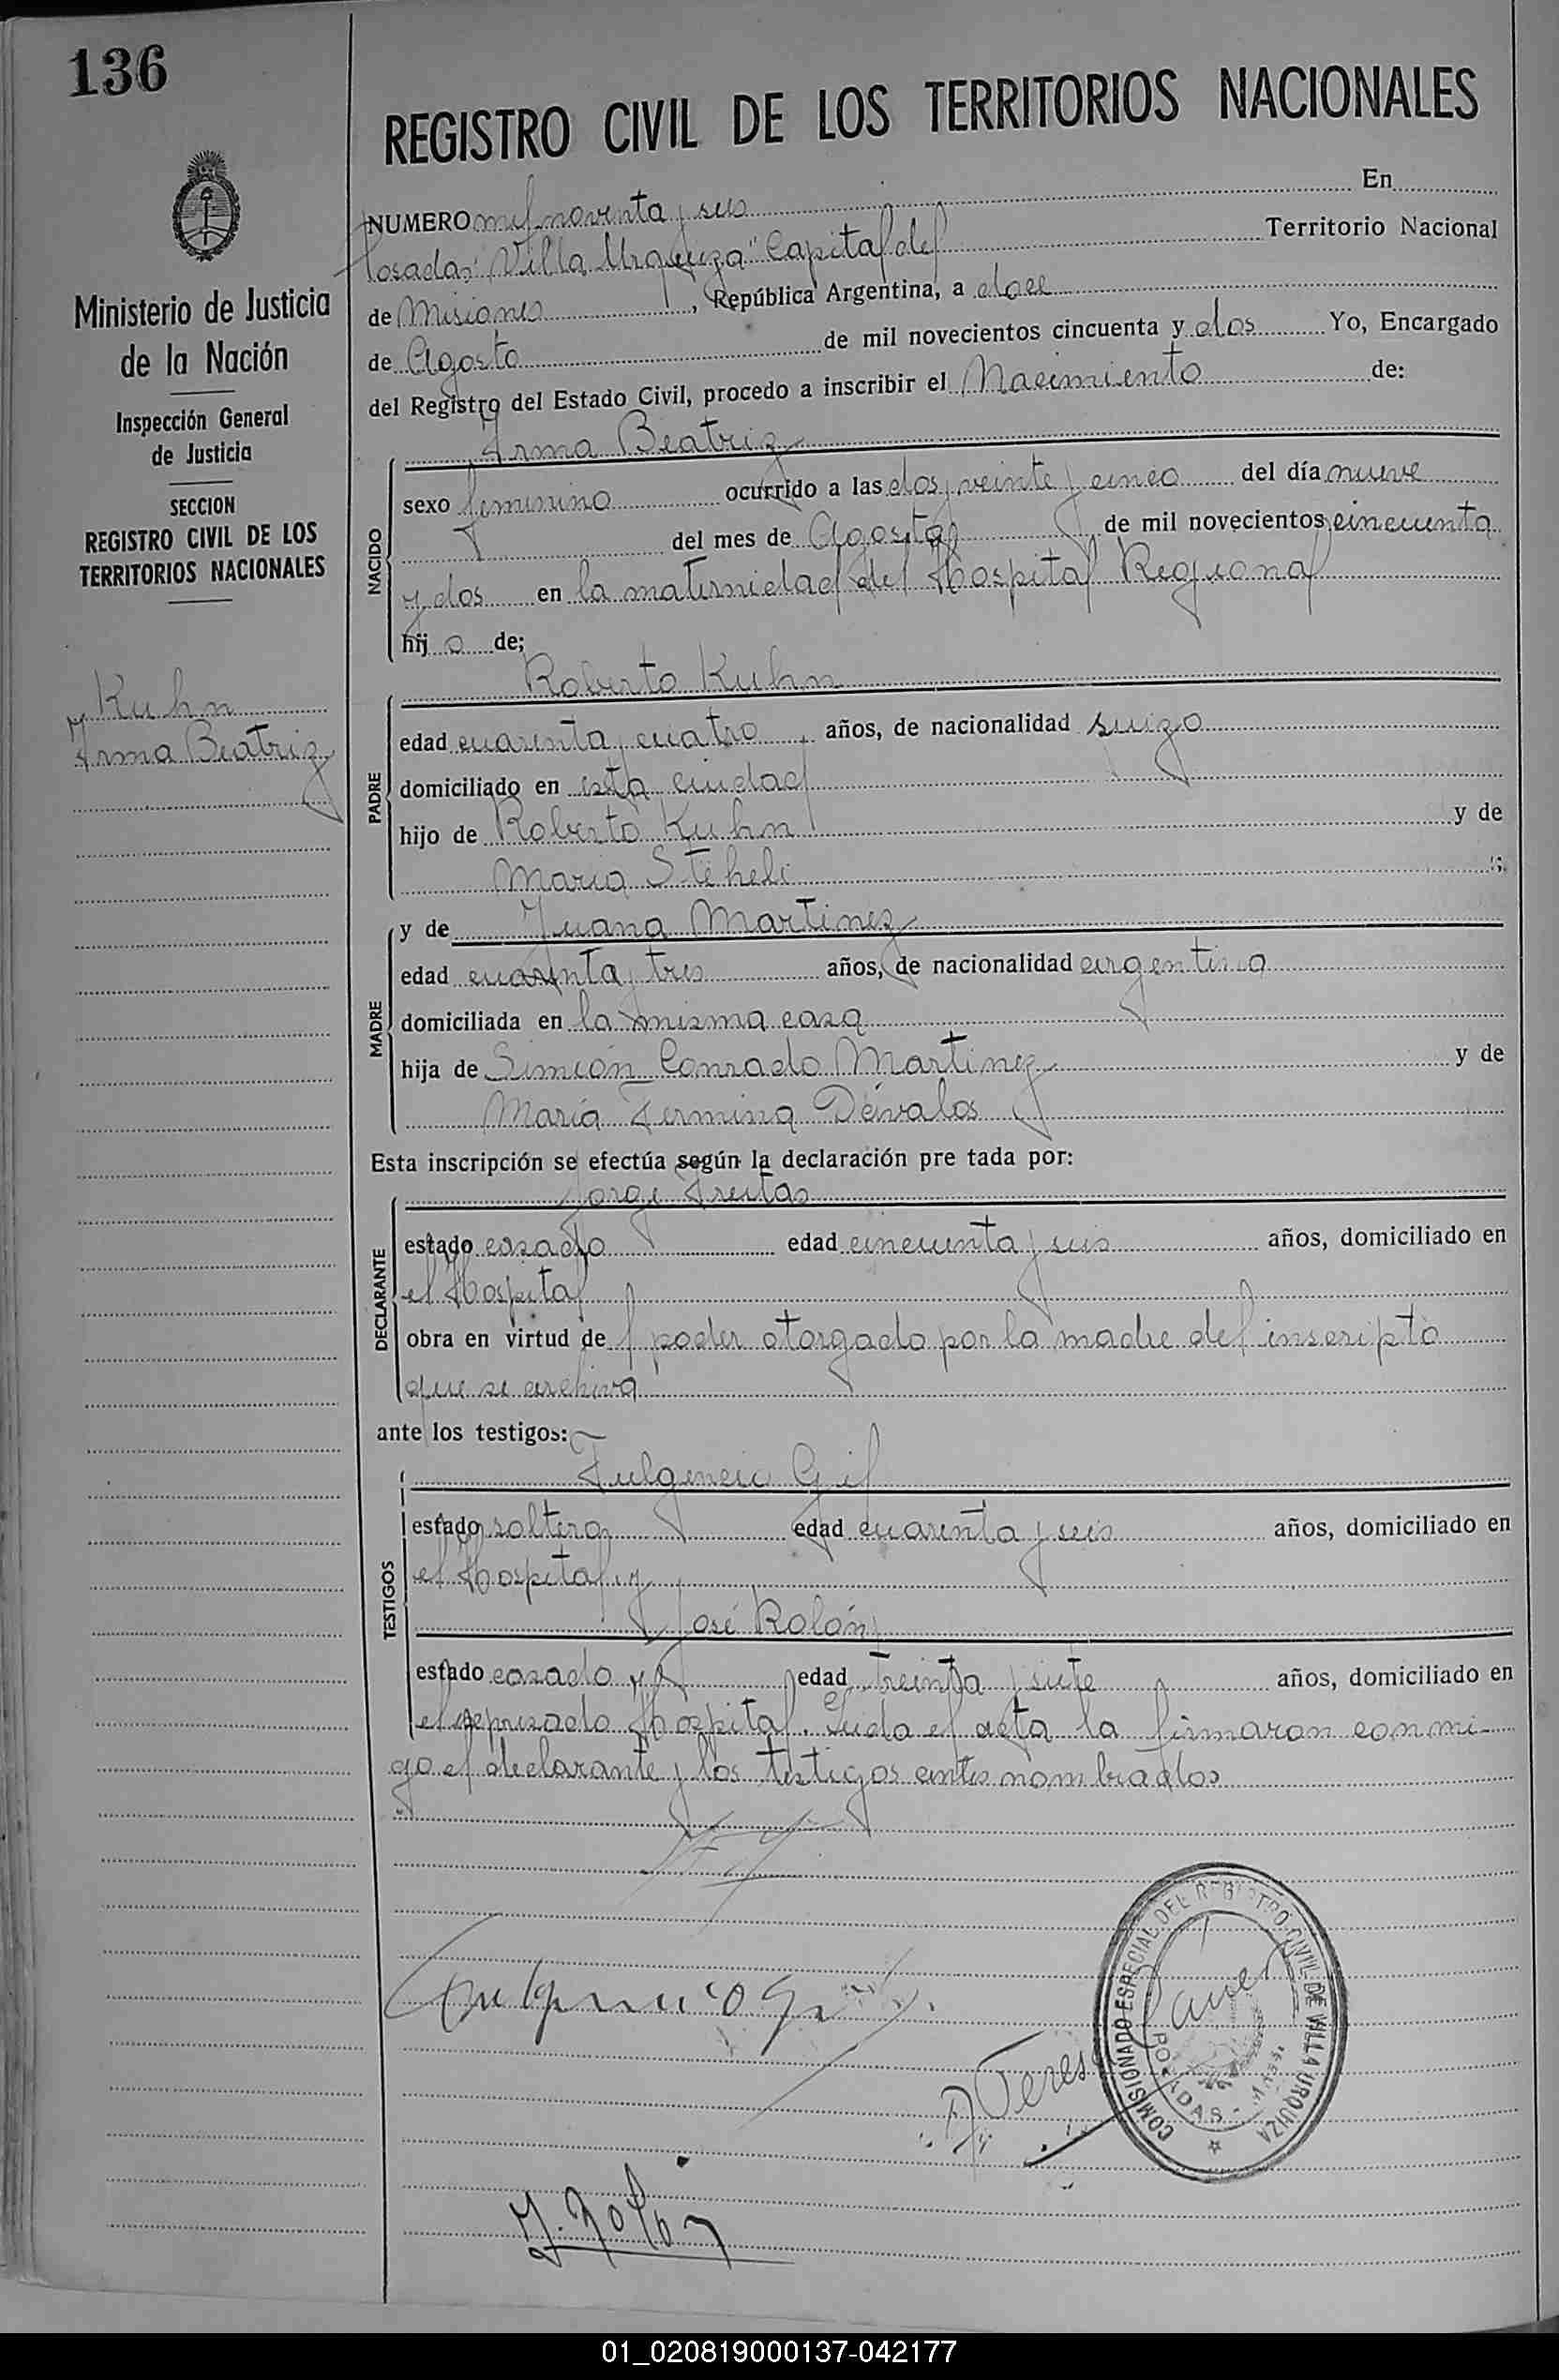 136
REGISTRO CIVIL DE LOS TERRITORIOS NACIONALES
Ministerio de Justicia
de la Nación
Inspección General
de Justicia
SECCION
REGISTRO CIVIL DE LOS
TERRITORIOS NACIONALES
Kuhn
Irma Beatriz
NUMERO mil noventa y seis En
Posadas "Villa Urquiza" Capital del Territorio Nacional
de Misiones, República Argentina, a doce
de Agosto de mil novecientos cincuenta y dos Yo, Encargado
del Registro del Estado Civil, procedo a inscribir el Nacimiento de:
Irma Beatriz
NACIDO
sexo femenino ocurrido a las dos y veinte y cinco del día nueve
del mes de Agosto de mil novecientos cincuenta
y dos en la maternidad del Hospital Regional
hij a de;
Roberto Kuhn
PADRE
edad cuarenta y cuatro, años, de nacionalidad suizo
domiciliado en esta ciudad
hijo de Roberto Kuhn y de
Maria Steheli ;
y de Juana Martinez
MADRE
edad cuarenta y tres años, de nacionalidad argentina
domiciliada en la misma casa
hija de Simeón Conrado Martinez y de
María Fermina Dávalos
Esta inscripción se efectúa según la declaración pre tada por:
Jorge Freitas
DECLARANTE
estado casado edad cincuenta y seis años, domiciliado en
el Hospital
obra en virtud de poder otorgado por la madre del inscripto
que se archiva
ante los testigos:
Fulgencio Gil
TESTIGOS
estado soltero edad cuarenta y seis años, domiciliado en
el Hospital y
José Rolón
estado casado y edad treinta y siete años, domiciliado en
el expresado Hospital. Leida el acta la firmaron conmi-
go el declarante y los testigos antes nombrados
COMISIONADO ESPECIAL DEL REGISTRO CIVIL DE VILLA URQUIZA
POSADAS
J. Rolón
01_020819000137-042177